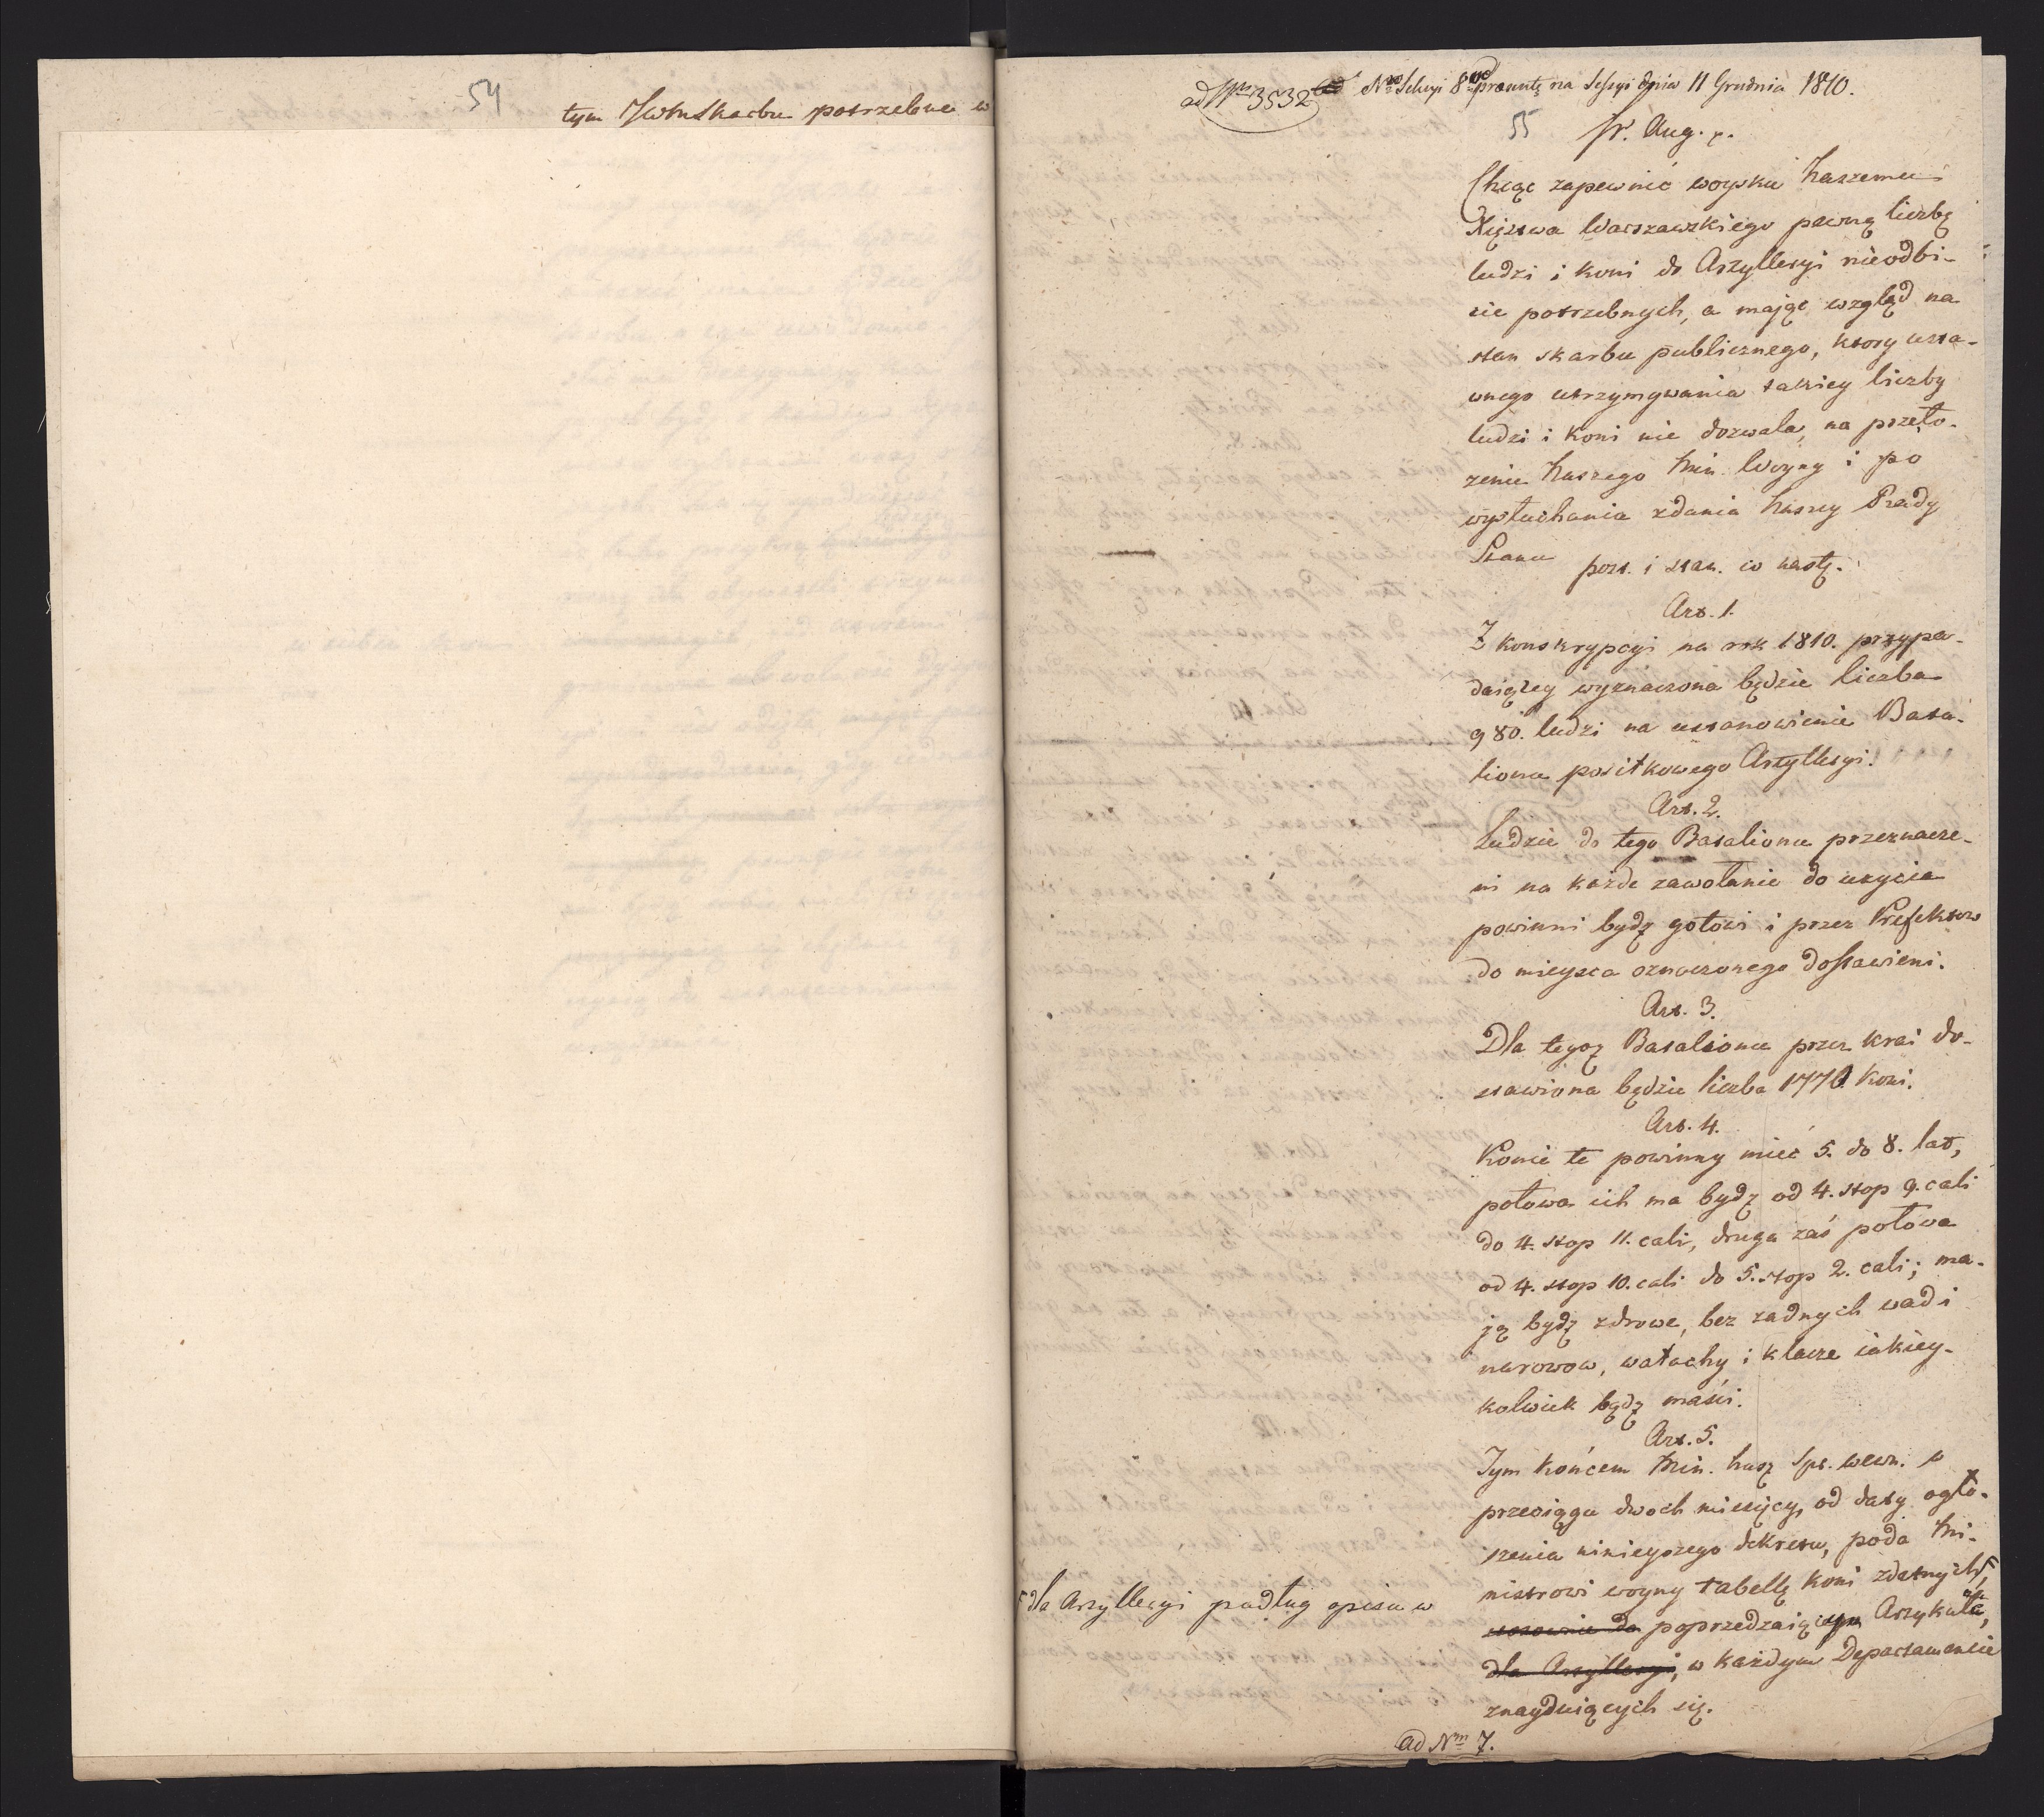 54
tym JWW Skarbu potrzebne w
ad Nrm 3532 Nro Sekcyi 8 na Sessyi dnia 11 Grudnia 1810.
55
Fr. Aug. p.
Chcąc zapewnić woysku Naszemu
Xięstwa Warszawskiego pewną liczbę
ludzi i koni do Artylleryi nieodbi-
cie potrzebnych, a mając wzgląd na
stan skarbu publicznego, ktory usta-
wnego utrzymywania takiey liczby
ludzi i koni nie dozwala, na przeło-
żenie Naszego Min. Woyny i po
wysłuchaniu zdania Naszey Rady
Stanu post. i stan. co nastę.
Art. 1.
Z konskrypcyi na rok 1810. przypa-
daiącey wyznaczona będzie liczba
980. ludzi na ustanowienie Bata-
lionu posiłkowego Artylleryi.
Art. 2.
Ludzie do tego Batalionu przeznacze-
ni na każde zawołanie do użycia
powinni bydź gotowi i przez Prefektow
do mieysca oznaczonego dostawieni.
Art. 3.
Dla tegoż Batalionu przez kraj do-
stawiona będzie liczba 1770 koni.
Art. 4.
Konie te powinny mieć 5. do 8. lat,
połowa ich ma bydź od 4. stop 9. cali
do 4. stop 11. cali, druga zaś połowa
od 4. stop 10. cali do 5. stop 2. cali; ma-
ją bydź zdrowe, bez żadnych wad i
narowow, wałachy i klacze iakiey-
kolwiek bądź maści.
Art. 5.
Tym końcem Min. Nasz Spr. wewn. w
przeciągu dwoch miesięcy, od daty ogło-
szenia ninieyszego dekretu, poda Mi-
nistrowi woyny tabellę koni zdatnych
dla Artylleryi podług opisu w
stosownie do poprzedzaiącym Artykule,
dla Artylleryi, w każdym Departamencie
znayduiących się.
Ad Nrm 7.